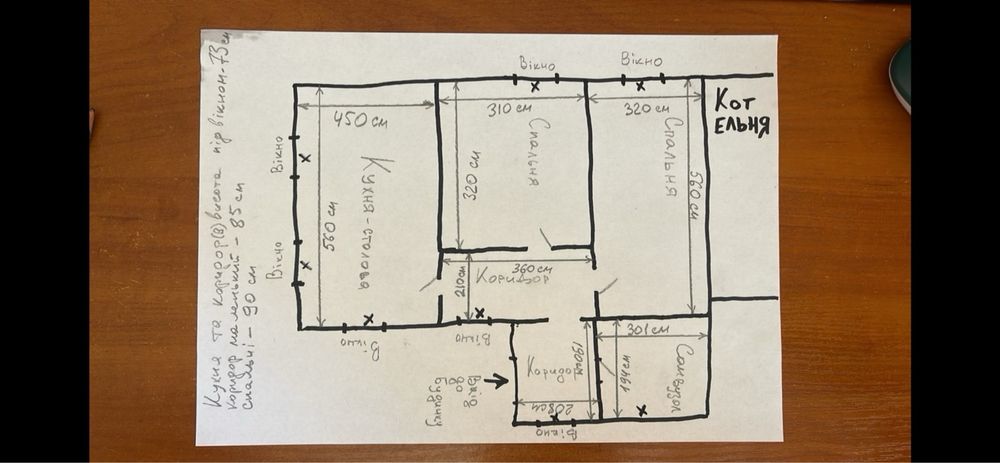 Кухня та коридор(з) висота під вікном - 73 см
коридор маленький - 85 см
спальні - 90 см
Вікно
Вікно
Кот
ельня
450 см
310 см
320 см
Вікно
Кухня - столова
560 см
320 см
Спальня
Спальня
560 см
Вікно
210 см
360 см
Коридор
Вікно
Вікно
Вхід
до
будинку
Коридор
190 см
208 см
Вікно
301 см
194 см
Санвузол